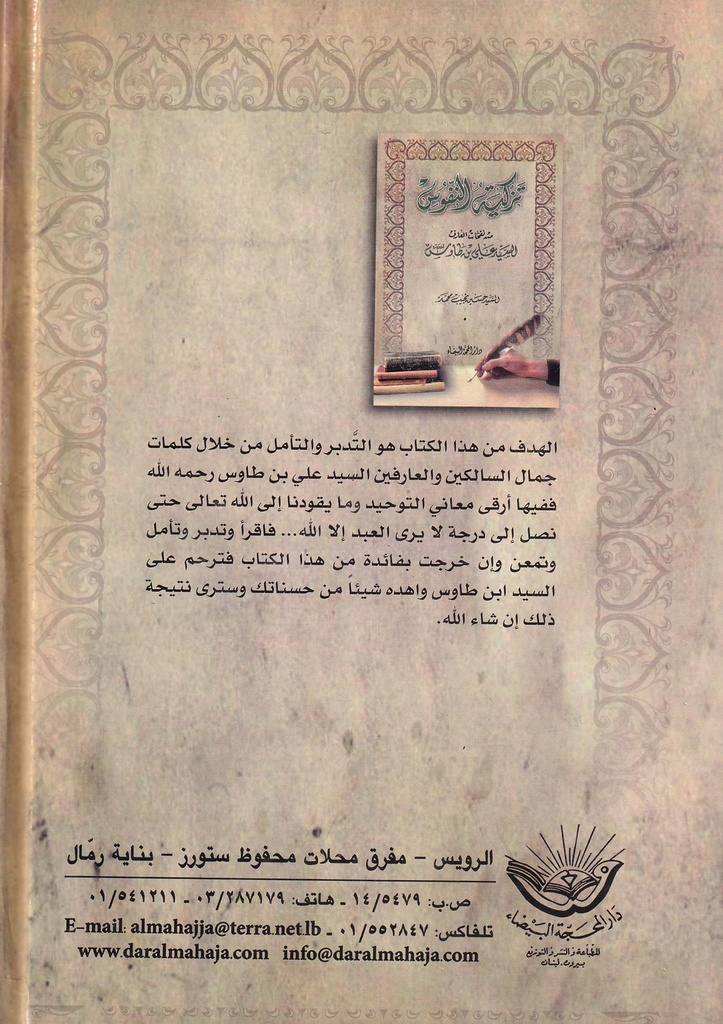 تزكية النفوس
من نفحات العارف
السيد علي بن طاووس
السيد حسين نجيب محمد
دار المحجة البيضاء
الهدف من هذا الكتاب هو التَّدبر والتأمل من خلال كلمات
جمال السالكين والعارفين السيد علي بن طاوس رحمه الله
ففيها أرقى معاني التوحيد وما يقودنا إلى الله تعالى حتى
نصل إلى درجة لا يرى العبد إلا الله... فاقرأ وتدبر وتأمل
وتمعن وإن خرجت بفائدة من هذا الكتاب فترحم على
السيد ابن طاوس واهده شيئاً من حسناتك وسترى نتيجة
ذلك إن شاء الله.
الرويس - مفرق محلات محفوظ ستورز - بناية رمّال
ص.ب: ١٤/٥٤٧٩ - هاتف: ٠٣/٢٨٧١٧٩ - ٠١/٥٤١٢١١
تلفاكس: ٠١/٥٥٢٨٤٧ - E-mail: almahajja@terra.net.lb
www.daralmahaja.com info@daralmahaja.com
دار المحجة البيضاء
للطباعة والنشر والتوزيع
بيروت. لبنان